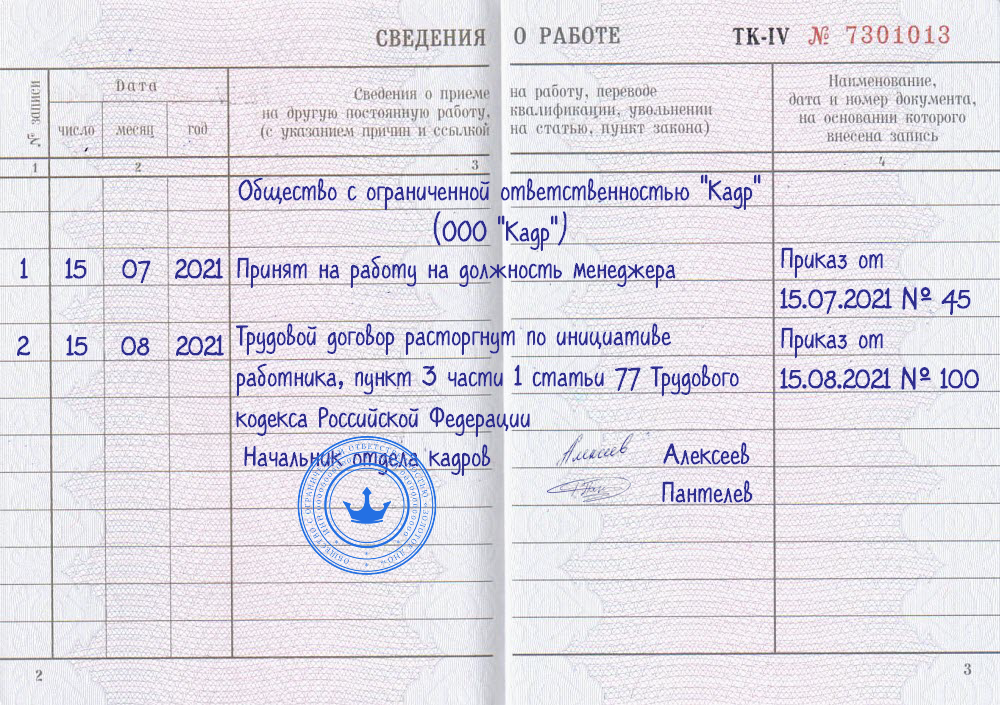 СВЕДЕНИЯ О РАБОТЕ ТК-IV № 7301013
№ записи
Дата
число месяц год
Сведения о приеме на работу, переводе
на другую постоянную работу, квалификации, увольнении
(с указанием причин и ссылкой на статью, пункт закона)
Наименование,
дата и номер документа,
на основании которого
внесена запись
1 2 3 4
Общество с ограниченной ответственностью "Кадр"
(ООО "Кадр")
1 15 07 2021 Принят на работу на должность менеджера Приказ от
15.07.2021 № 45
2 15 08 2021 Трудовой договор расторгнут по инициативе Приказ от
работника, пункт 3 части 1 статьи 77 Трудового 15.08.2021 № 100
кодекса Российской Федерации
Начальник отдела кадров Алексеев Алексеев
Пантелев
ОБЩЕСТВО С ОГРАНИЧЕННОЙ ОТВЕТСТВЕННОСТЬЮ «ЗОЛОТОЕ ДНО»
2 3